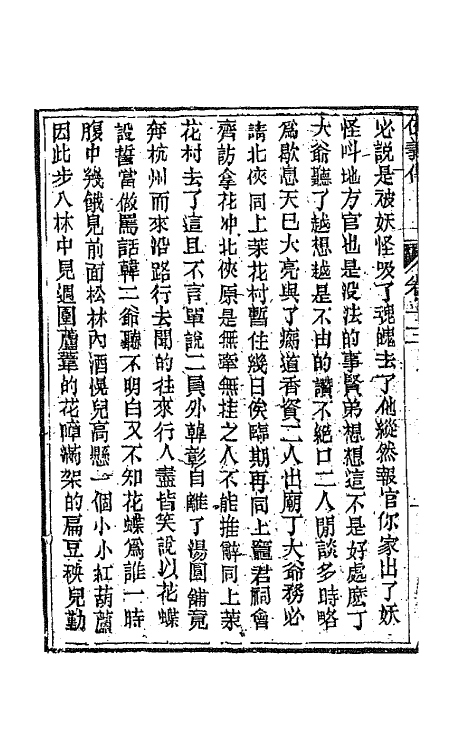 必說是被妖怪吸了魂魄去了他縱然報官你家出了妖
怪呌地方官也是沒法的事賢弟想想這不是好處麽丁
大爺聽了越想越是不由的讚不絕口二人閒談多時略
爲歇息天已大亮與了廟道香資二人出廟丁大爺務必
請北俠同上茉花村暫住幾日俟臨期再同上竈君祠會
齊訪拿花冲北俠原是無牽無挂之人不能推辭同上茉
花村去了這且不言單說二員外韓彰自離了湯圓舖竟
奔杭州而來沿路行去聞的徃來行人盡皆笑說以花蝶
設誓當做罵話韓二爺聽不明白又不知花蝶爲誰一時
腹中幾餓見前面松林內酒幌兒高懸一個小小紅葫蘆
因此步入林中見週圍蘆葦的花障滿架的扁豆秧兒勤